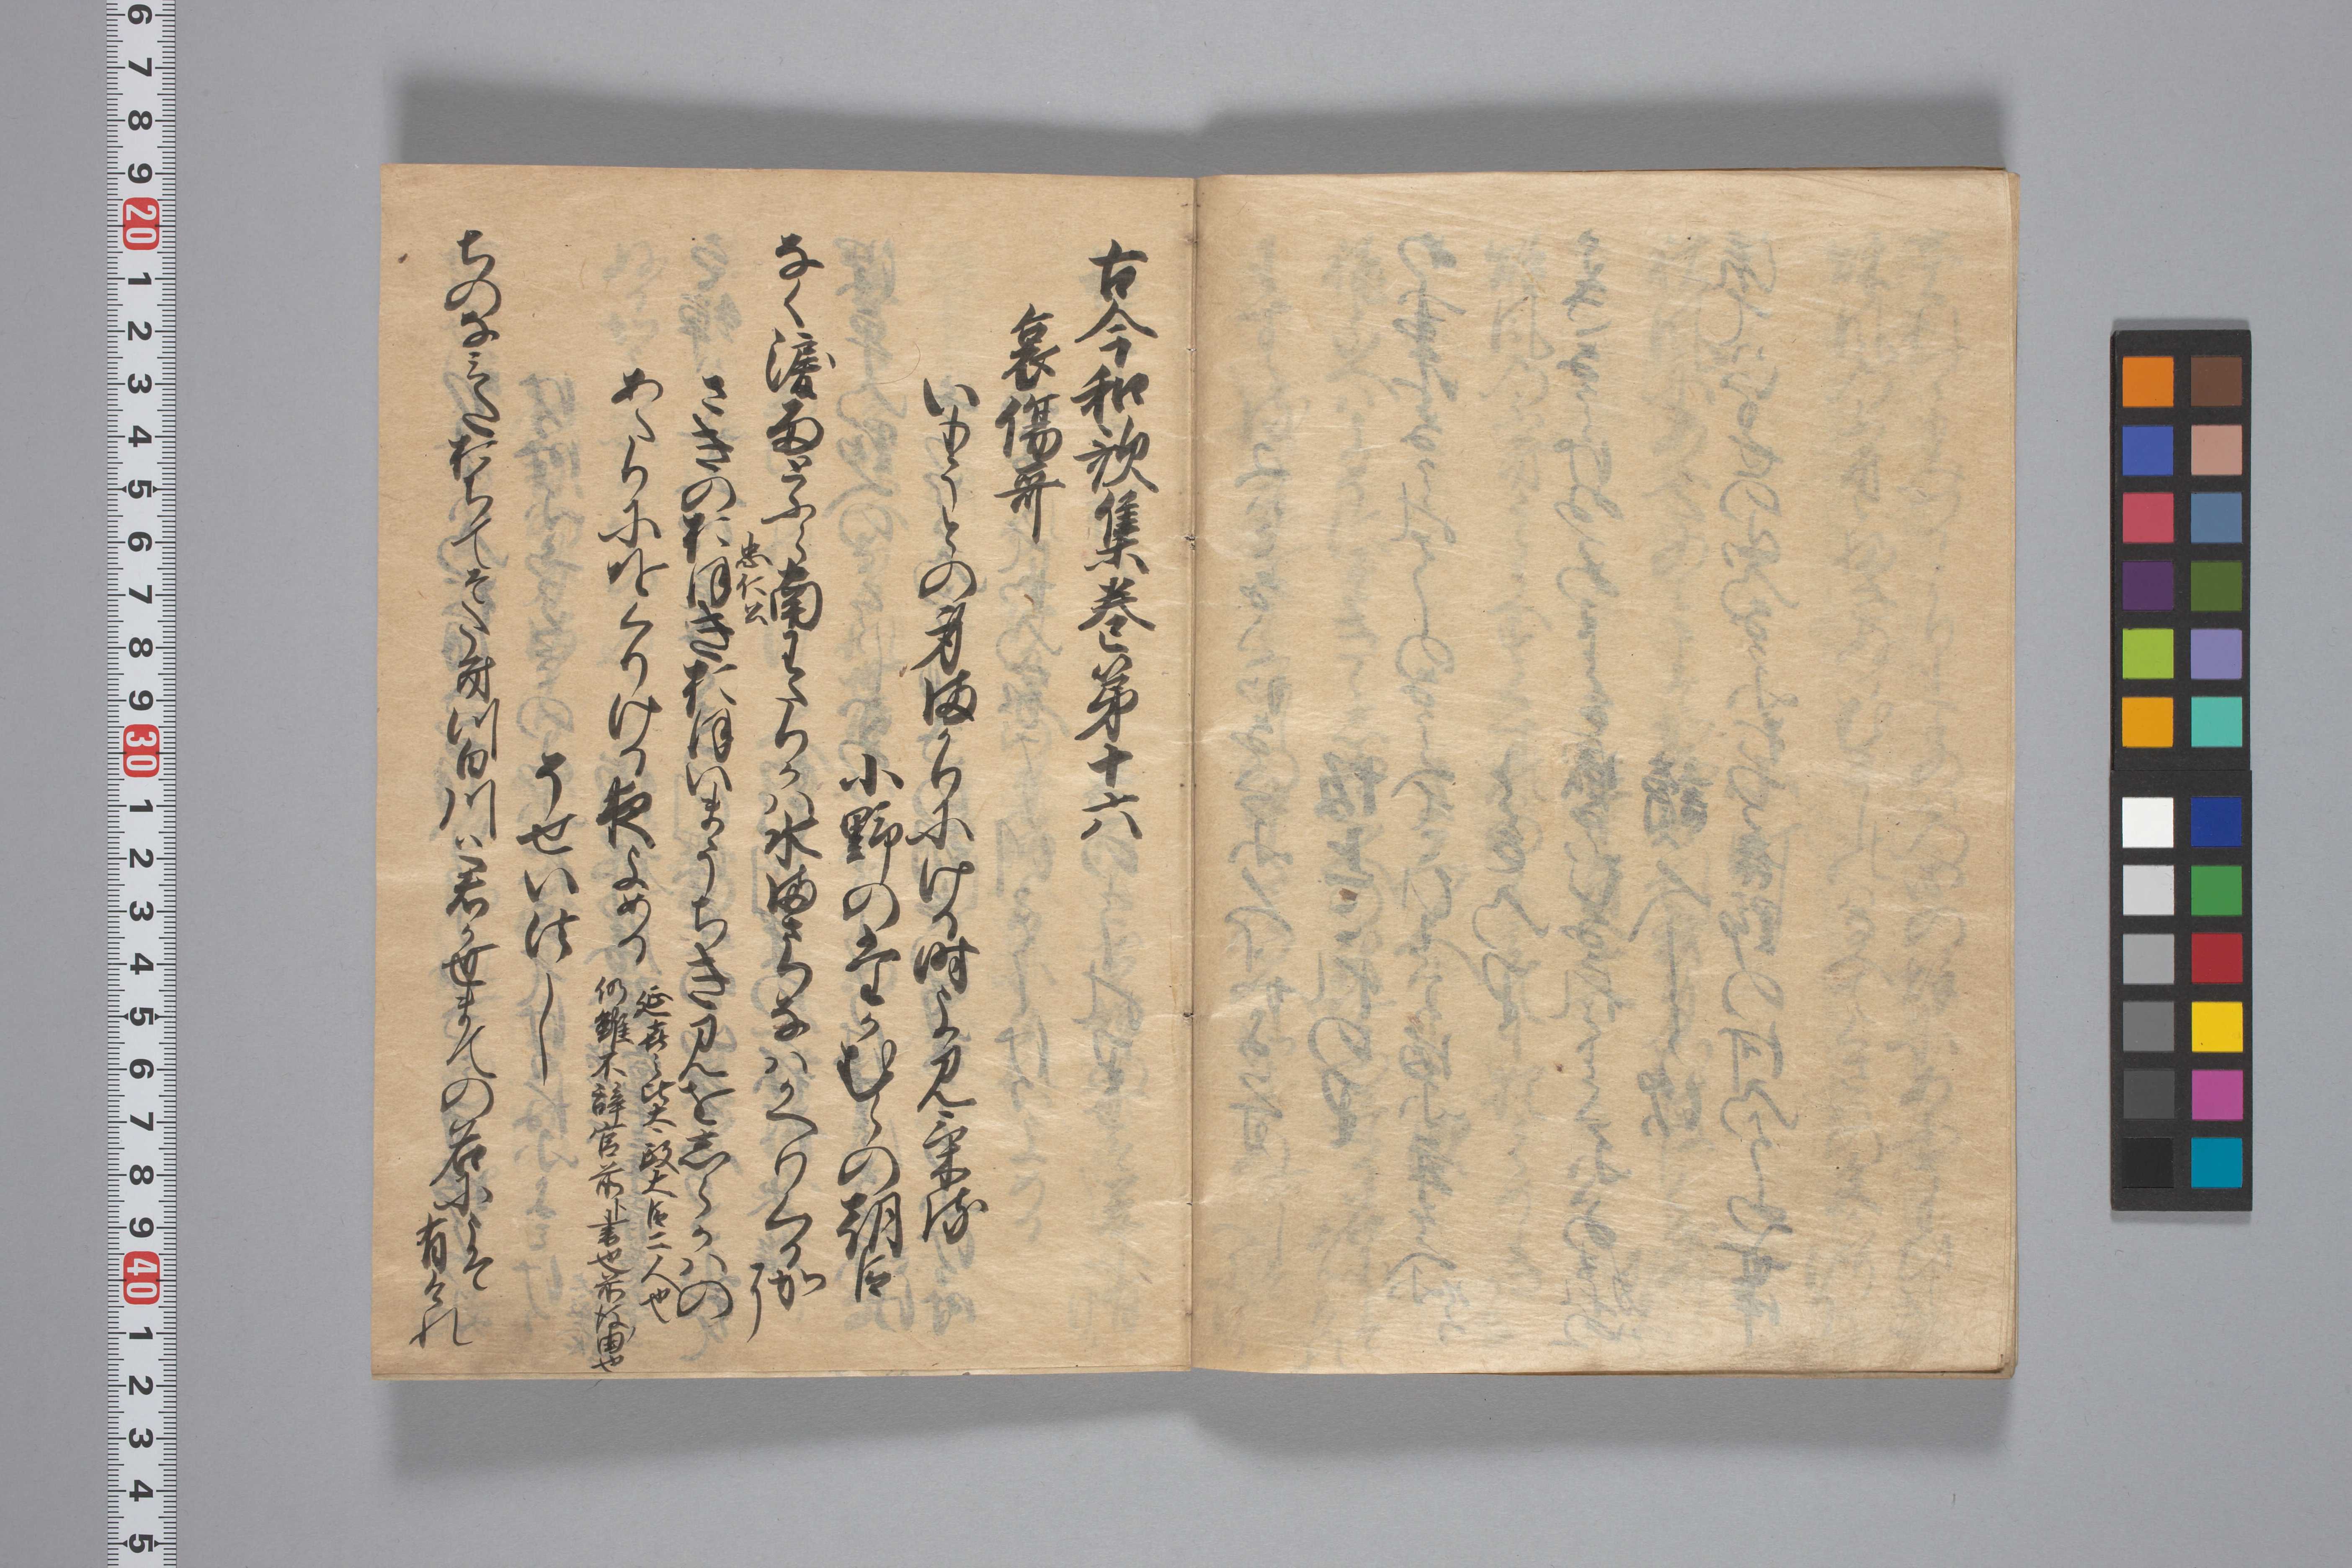 古今和歌集巻第十六
哀傷哥
いもうとの身まかりにける時よみける
小野のたかむらの朝臣
なく涙雨とふら南わたり川水まさりなはかへりくるか
に
忠仁公
さきのおほきおほいまうちきみをしらかはの
あたりにおくりける夜よめる
延喜以此太政大臣二人也
仍雖不辞官前
そせい法し
ちのなみたおちてそたきつ白川は君か世まての名にこそ
有けれ